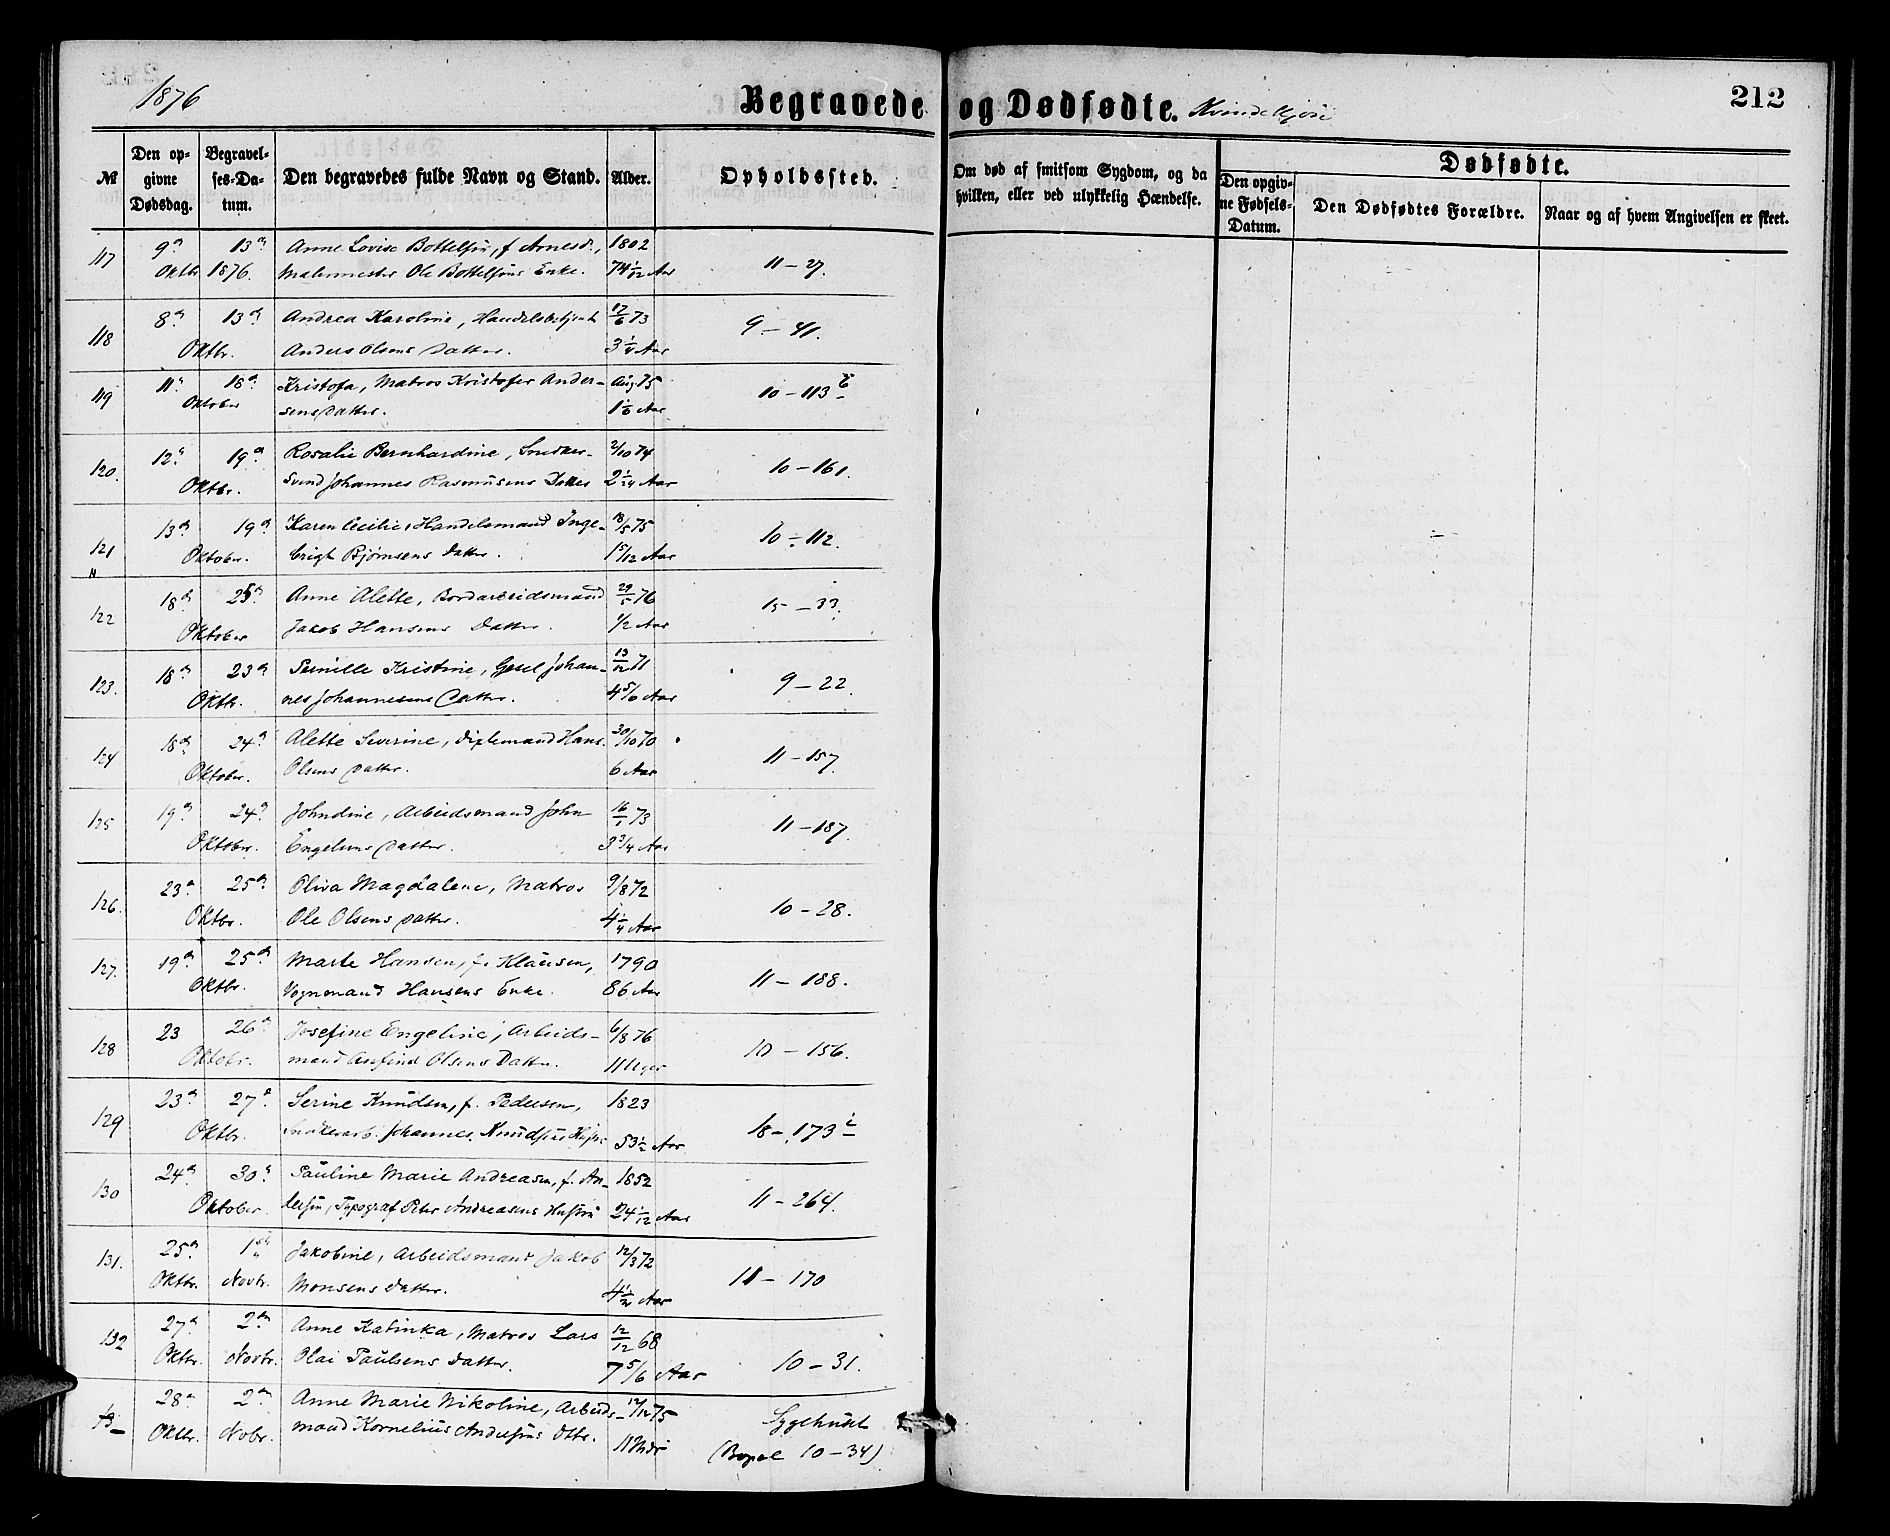 1876
Begravede og Dødfødte. Kvindekjøn
212
№
Den opgivne Dødsdag.
Begravelses-Datum.
Den begravedes fulde Navn og Stand.
Alder.
Opholdssted.
Om død af smitsom Sygdom, og da hvilken, eller ved ulykkelig Hændelse.
Dødfødte.
Den opgivne Fødsels-Datum.
Den Dødfødtes Forældre.
Naar og af hvem Angivelsen er skeet.
117 9de 13de Anne Lovise Bottelsen, f. Arnesd., 1802
Oktbr 1876. Malermester Ole Bottelsens Enke. 74 1/12 Aar 11 – 27.
118 8de 13de Andrea Karoline, Handelsbetjent 17/6 73 9 – 41.
Oktbr. Anders Olsens Datter. 3 1/4 Aar
119 11te 18de Kristofa, Matros Kristofer Ander- Aug 75 10 – 113
Oktober sens Datter. 1 1/6 Aar
120. 12te 19de Rosalie Bernhardine, Snedker- 2/10 74 10 – 161.
Oktbr. Svend Johannes Rasmusens Datter 2 1/24 Aar
121 13de 19de Karen Cecilie, Handelsmand Inge- 18/5 75 10 – 112.
Oktober. brigt Bjørnsens Datter. 1 5/12 Aar
122 18de 25de Anne Alette, Bordarbeidsmand 29/5 76 15 – 33.
Oktober Jakob Hansens Datter. 1/2 Aar
123. 18de 23de Pernille Kristine, Gesel Johan- 13/12 71 9 – 22.
Oktbr. nes Johannesens Datter. 4 5/6 Aar
124 18de 24de Alette Severine, Dixlemand Hans 30/10 70 11 – 157.
Oktober. Olsens Datter. 6 Aar
125 19de 24de Johndine, Arbeidsmand John 16/1 73 11 – 187.
Oktober. Engelsens Datter. 3 3/4 Aar
126. 23de 25de Oliva Magdalene, Matros 9/8 72 10 – 28.
Oktbr. Ole Olsens Datter. 4 1/4 Aar
127. 19de 25de Marte Hansen, f. Klausen, 1790 11 – 188.
Oktbr. Vognmand Hansens Enke. 86 Aar
128 23 26de Josefine Engeline, Arbeids- 6/8 76 10 – 156.
Oktobr. mand Anfind Olsens Datter. 11 Uger
129 23de 27de Serine Knudsen, f. Pedersen, 1823 18 – 173
Oktbr. Snedkerarb. Johannes Knudsens Hustru 53 1/2 Aar
130 24de 30te Pauline Marie Andreasen, f. An- 1852 11 – 264.
Oktober. dersen, Typograf Peter Andreasens Hustru 24 1/12 Aar
131. 25de 1ste Jakobine, Arbeidsmand Jakob 12/3 72 18 – 170
Oktbr. Novbr. Monsens Datter. 4 1/2 Aar
132 27de 2den Anne Katinka, Matros Lars 12/12 68 10 – 31.
Oktbr. Novbr. Olai Paulsens Datter. 7 5/6 Aar
28de 2den Anne Marie Nikoline, Arbeids- 17/12 75 Sygehuset
Oktbr. Nobr. mand Kornelius Andersens Dtter. 11 Mdr (Bopæl 10 – 34)